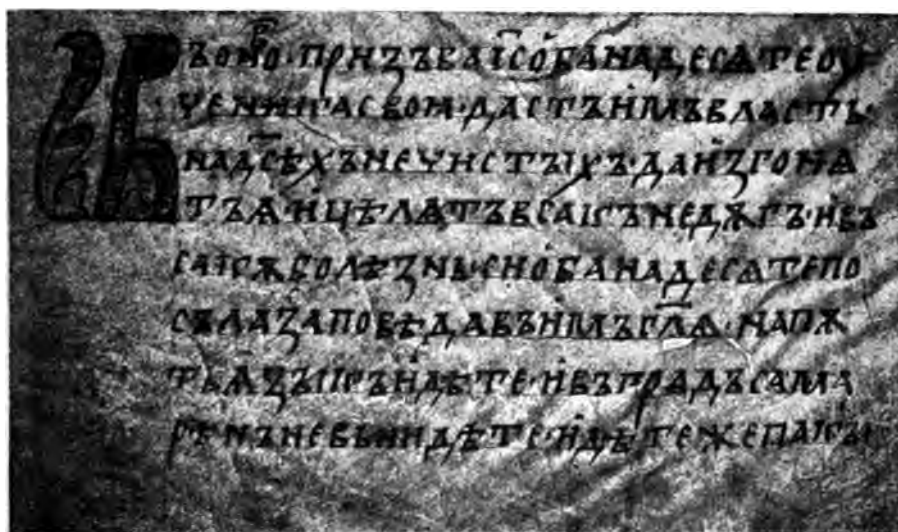 Въоно·призъваі҃соба надесѧтеоу
ченикасвоꙗ·дастъимъвласть·
надс҃ѣхънечистыхъ·даизгонѧ
тъѧ·ицѣлѧтъвсакънедѫгъ·ивъ
сакѫболѣзнь·сиꙩбанадесѧтепо
съла заповѣдавъимъгл҃ѧ·напѫ
тьѧзыкънидѣте·ивъградъсама
рѣнъневънидѣте·идѣтежепакы